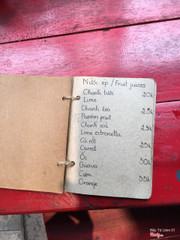 Nước ép / Fruit juices
Chanh tươi 20k
Lime
Chanh leo 25k
Passion fruit
Chanh sả 25k
Lime citronella
Cà rốt 25k
Carrot
Ổi 30k
Guava
Cam 35k
Orange